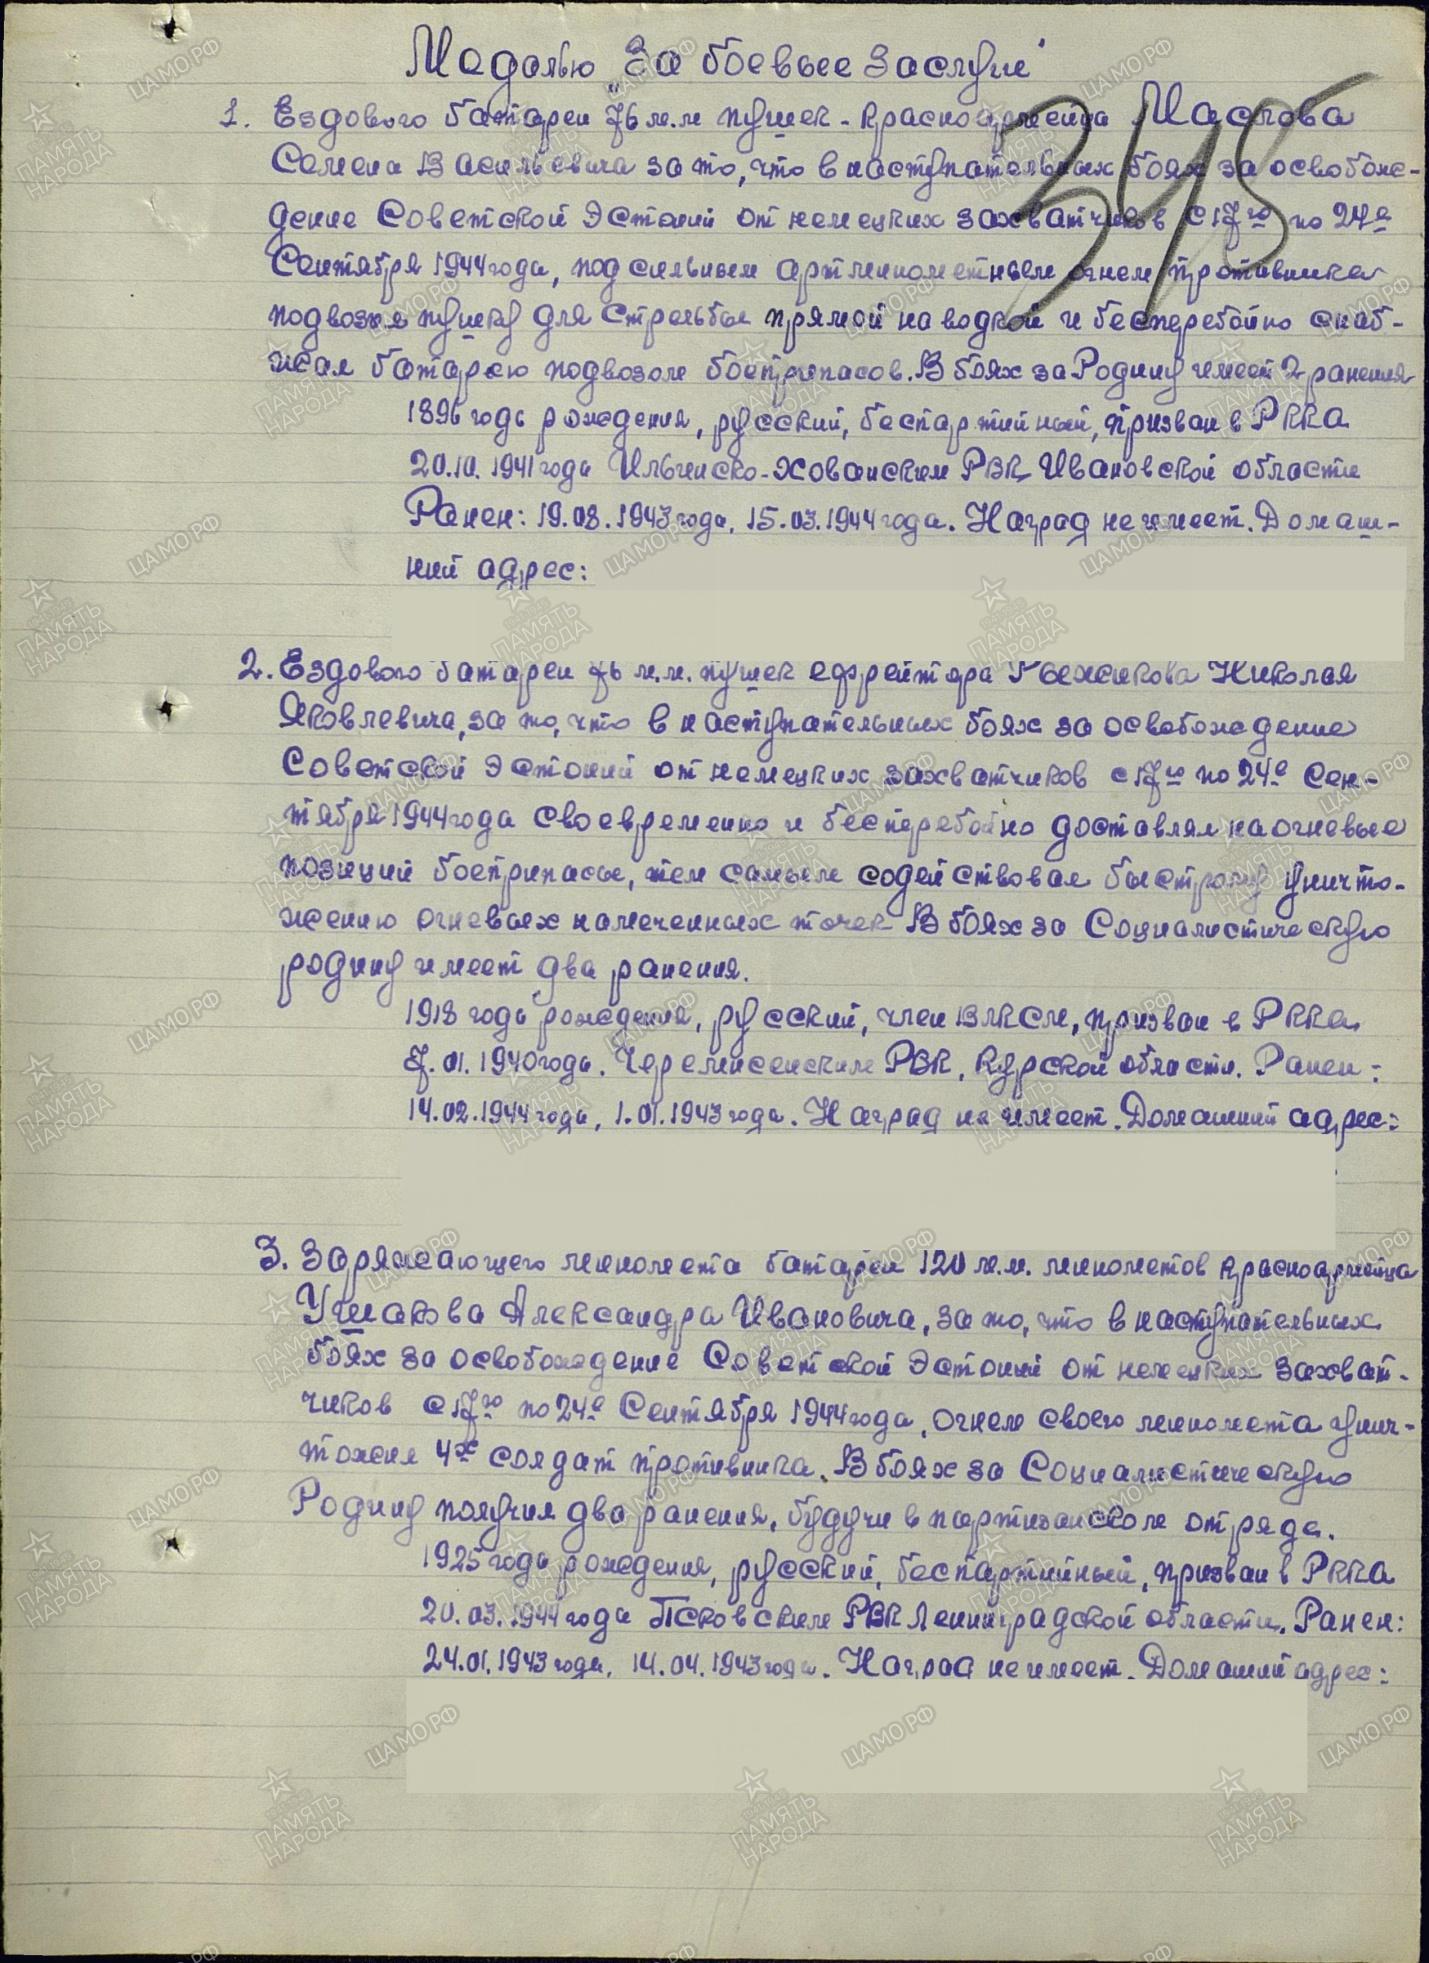 Медалью „За боевые заслуги"
345
1. Ездового батареи 76 м.м пушек - красноармейца Маслова
Семена Васильевича за то, что в наступательных боях за освобож-
дение Советской Эстонии от немецких захватчиков с 17го по 24е
Сентября 1944 года, под сильным артминометным огнем противника
подвозил пушку для стрельбы прямой наводкой и бесперебойно снаб-
жал батарею подвозом боеприпасов. В боях за Родину имеет 2 ранения
1896 года рождения, русский, беспартийный, призван в РККА
20.10.1941 года Ильинско-Хованским РВК Ивановской области
Ранен: 19.08.1943 года, 15.03.1944 года. Наград не имеет. Домаш-
ний адрес:
2. Ездового батареи 76 м.м. пушек ефрейтора Рыженкова Николая
Яковлевича, за то, что в наступательных боях за освобождение
Советской Эстонии от немецких захватчиков с 17го по 24е Сен-
тября 1944 года своевременно и бесперебойно доставлял на огневые
позиции боеприпасы, тем самым содействовал быстрому уничто-
жению огневых намеченных точек В боях за Социалистическую
родину имеет два ранения.
1918 года рождения, русский, член ВЛКСМ, призван в РККА
7.01.1940 года. Черемисенским РВК, Курской области. Ранен:
14.02.1944 года, 1.01.1943 года. Наград не имеет. Домашний адрес:
3. Заряжающего миномета батареи 120 м.м. минометов красноармейца
Ушакова Александра Ивановича, за то, что в наступательных
боях за освобождение Советской Эстонии от немецких захват-
чиков с 17го по 24е Сентября 1944 года, огнем своего миномета унич-
тожил 4х солдат противника. В боях за Социалистическую
Родину получил два ранения, будучи в партизанском отряде.
1925 года рождения, русский, беспартийный, призван в РККА
20.03.1944 года Псковским РВК Ленинградской области. Ранен:
24.01.1943 года, 14.04.1943 года. Наград не имеет. Домашний адрес:
ЦАМО.РФ
ПАМЯТЬ
НАРОДА